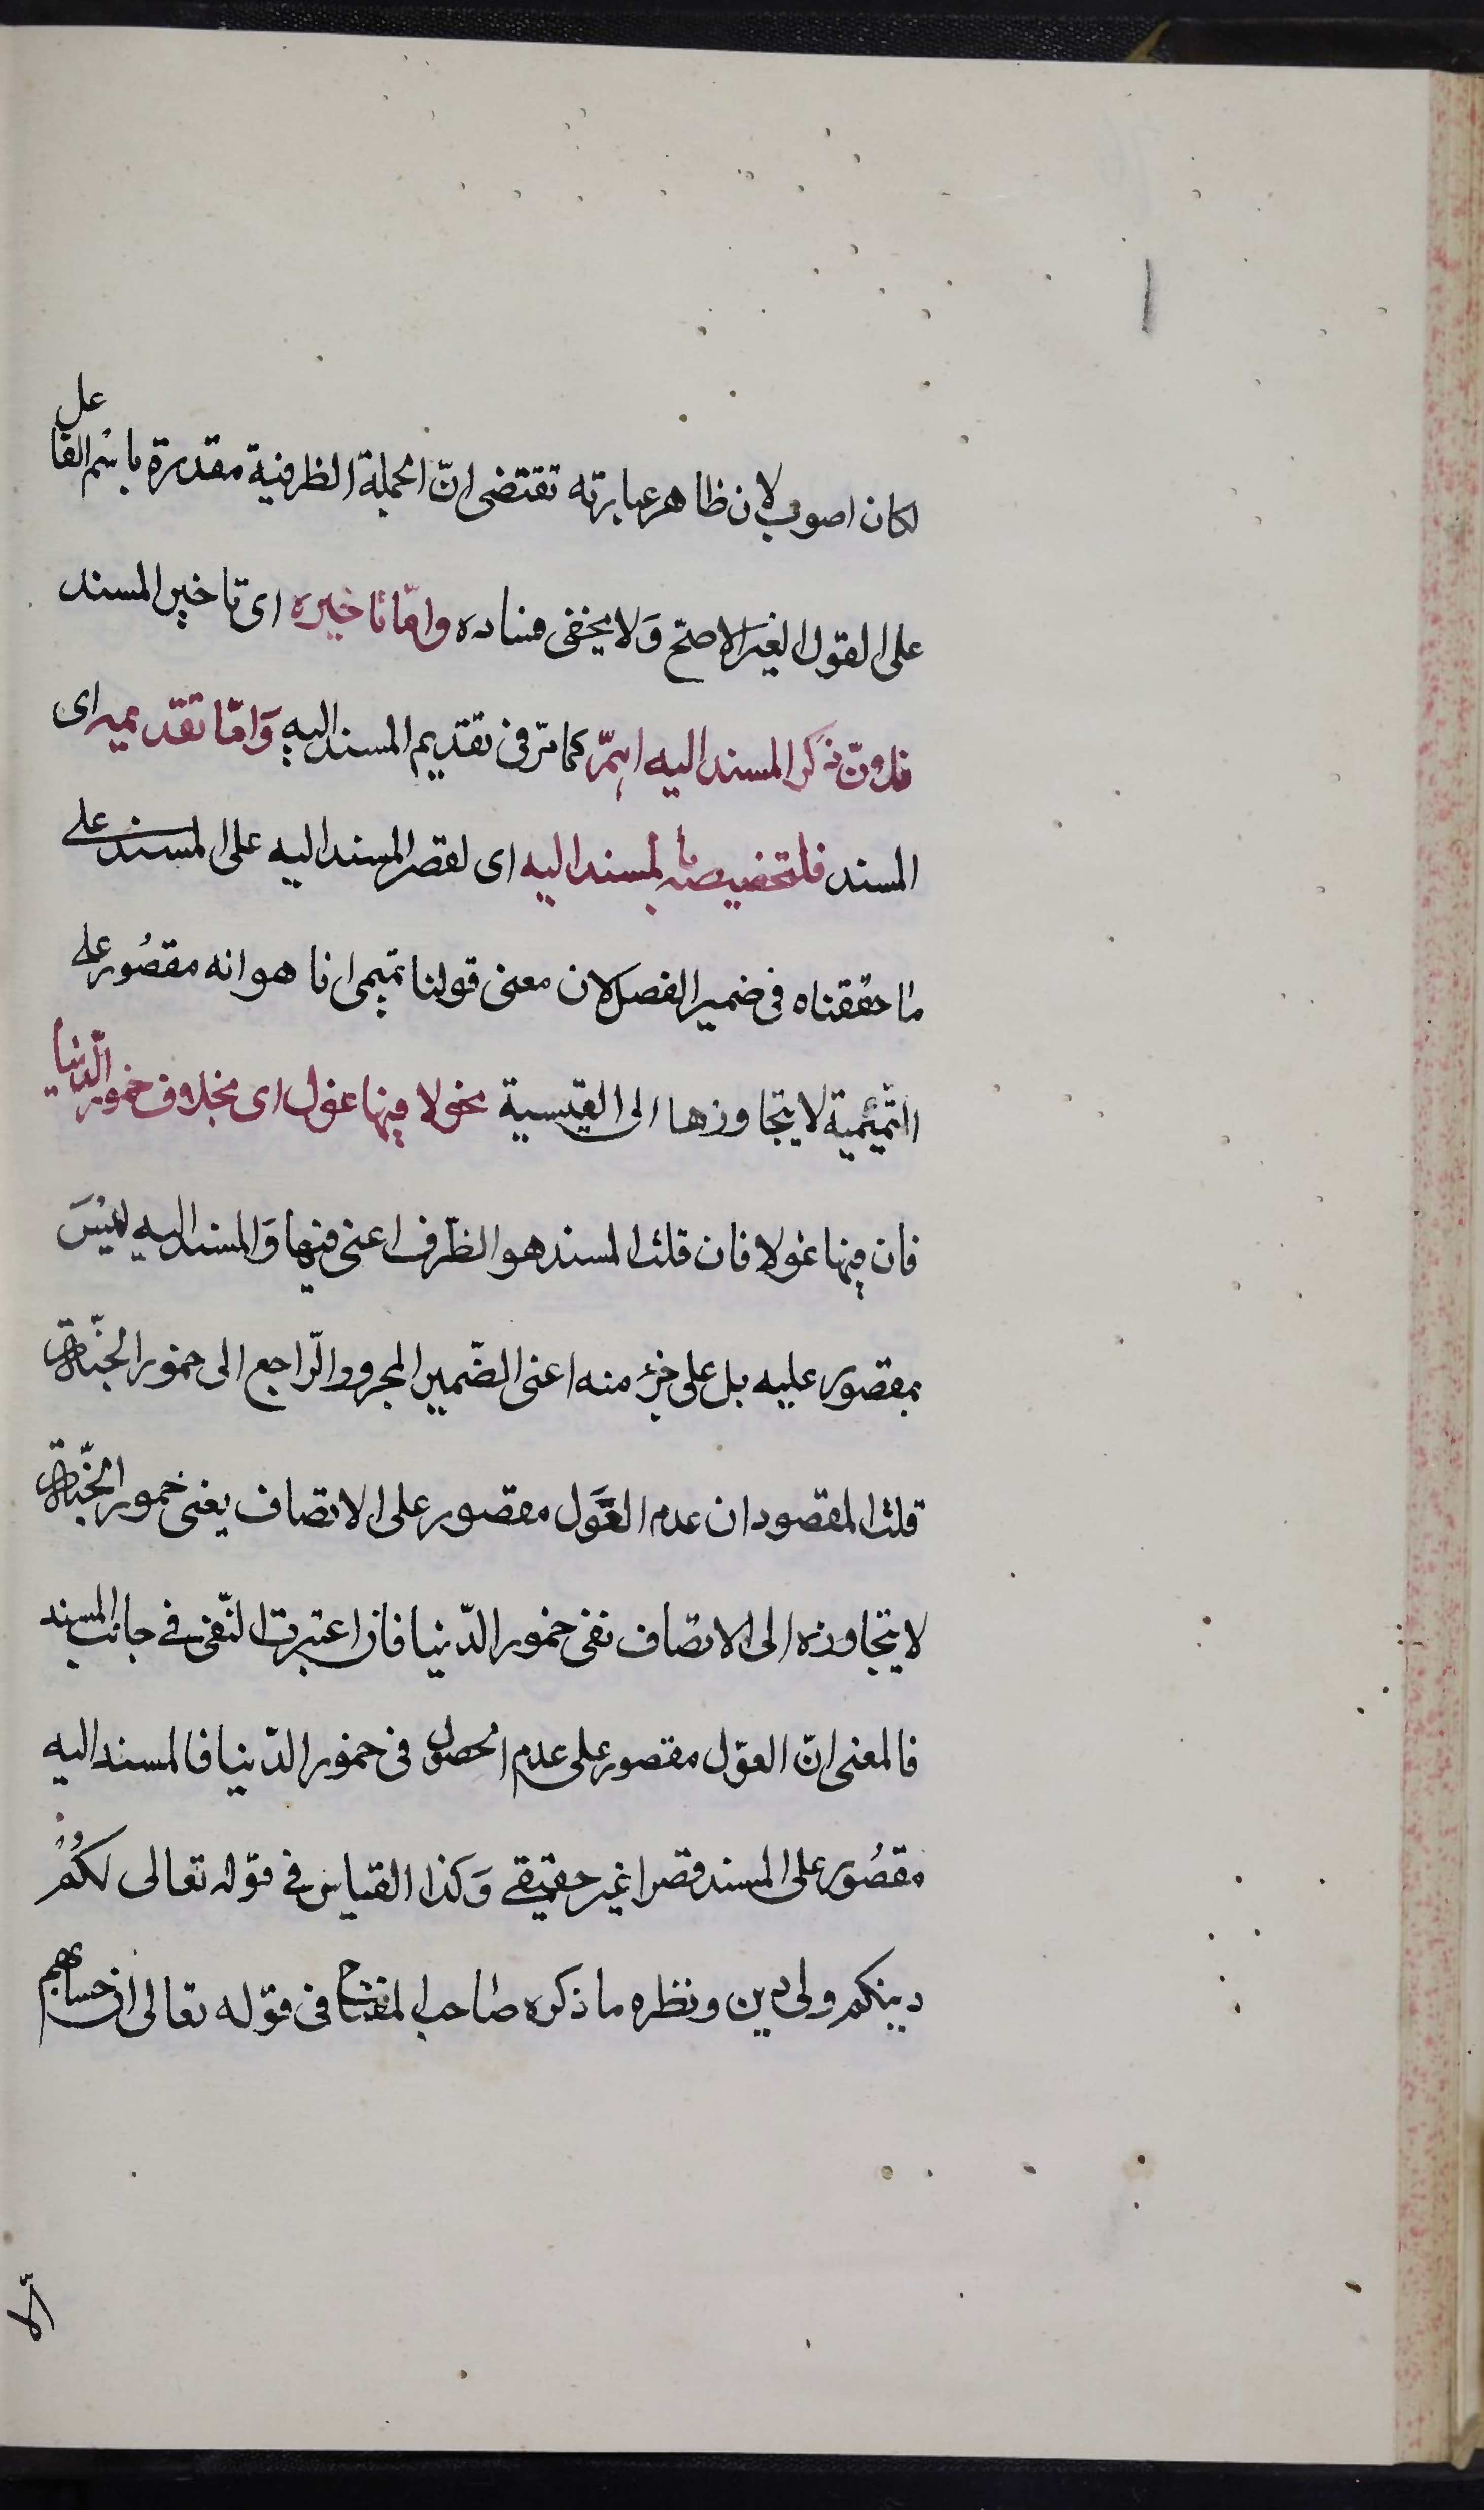 ١
لكان اصوب لان ظاهر عبارته تقتضى انّ الجملة الظرفية مقدرة باسْم الفاعل
على القول الغير الاصحّ وَلا يخفى فساده وامّا تاخيره اى تاخير المسند
فلانّ ذكر المسند اليه اهمّ كما مرّ فى تقديم المسند اليه وَامّا تقديمه اى
المسند فلتخصيصه بالمسند اليه اى لقصر المسند اليه على المسند على
ما حققناه فى ضمير الفصل لان معنى قولنا تميمى انا هو انه مقصُور على
التّميمية لا يتجاوزها الى القيسية نحو لا فيها غول اى بخلاف خمور الدّنيا
فان فيها غولا فان قلت المسند هو الظّرف اعنى فيها وَالمسند اليه ليْسَ
بمقصور عليه بل على جزء منه اعنى الضّمير المجرور الرّاجع الى خمور الجنّة
قلت المقصود ان عدم الغَوَل مقصور على الاتصاف بفى خمور الجنّة
لا يتجاوزه الى الاتصاف بفى خمور الدّنيا فان اعتبرت النّفى فى جانب المسند
فالمعنى انّ الغوّل مقصور على عدم الحصول فى خمور الدّنيا فالمسند اليه
مقصُور على المسند قصرا غير حقيقى وَكذا القياس فى قوّله تعالى لكُمْ
دينكم ولى دين ونظره ما ذكره صاحب المفتاح فى قوّله تعالى ان حسابهم
الّا